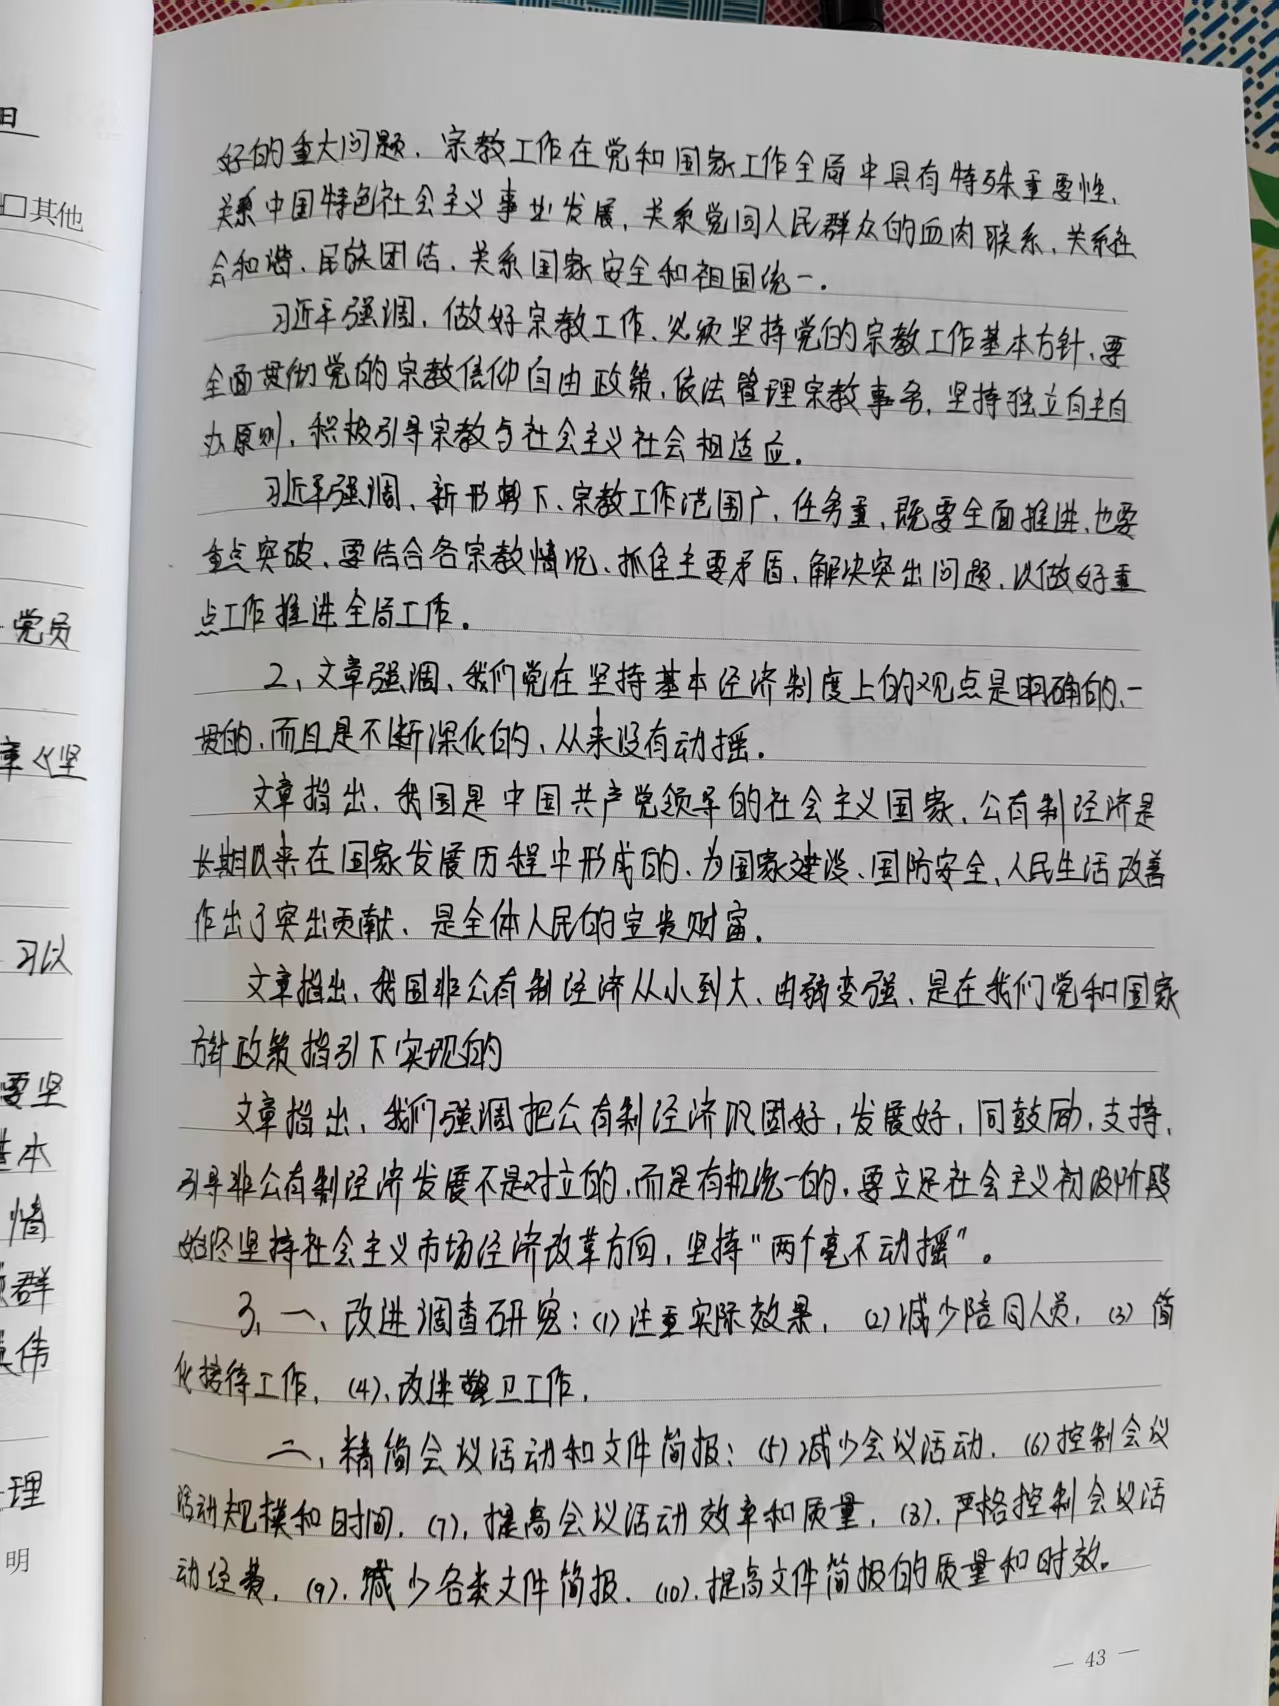 日
□其他
党员
章《坚
习以
要坚
基本
情
群
伟
理
明
好的重大问题，宗教工作在党和国家工作全局中具有特殊重要性，
关系中国特色社会主义事业发展，关系党同人民群众的血肉联系，关系社
会和谐、民族团结，关系国家安全和祖国统一。
习近平强调，做好宗教工作，必须坚持党的宗教工作基本方针，要
全面贯彻党的宗教信仰自由政策，依法管理宗教事务，坚持独立自主自
办原则，积极引导宗教与社会主义社会相适应。
习近平强调，新形势下，宗教工作范围广，任务重，既要全面推进，也要
重点突破，要结合各宗教情况，抓住主要矛盾，解决突出问题，以做好重
点工作推进全局工作。
2、文章强调，我们党在坚持基本经济制度上的观点是明确的、一
贯的，而且是不断深化的，从来没有动摇。
文章指出，我国是中国共产党领导的社会主义国家，公有制经济是
长期以来在国家发展历程中形成的，为国家建设、国防安全、人民生活改善
作出了突出贡献，是全体人民的宝贵财富。
文章指出，我国非公有制经济从小到大、由弱变强，是在我们党和国家
方针政策指引下实现的
文章指出，我们强调把公有制经济巩固好，发展好，同鼓励，支持，
引导非公有制经济发展不是对立的，而是有机统一的，要立足社会主义初级阶段
始终坚持社会主义市场经济改革方向，坚持“两个毫不动摇”。
3、一、改进调查研究：(1)注重实际效果，(2)减少陪同人员，(3)简
化接待工作，(4)、改进警卫工作，
二、精简会议活动和文件简报：(5)减少会议活动，(6)控制会议
活动规模和时间，(7)，提高会议活动效率和质量，(8)，严格控制会议活
动经费，(9)，减少各类文件简报，(10)，提高文件简报的质量和时效。
— 43 —